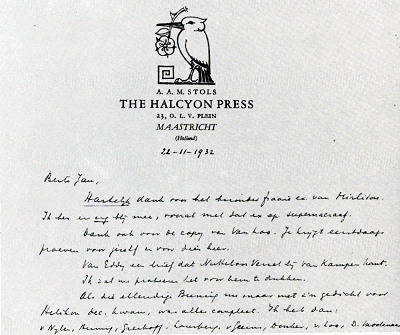 A. A. M. STOLS
THE HALCYON PRESS
23, O. L. V. PLEIN
MAASTRICHT
(Holland)
22-11-1932
Beste Jan,
Hartelijk dank voor het bijzonder fraaie ex. van Mirliton.
Ik ben er erg blij mee, vooral met dat ex op
Dank ook voor de copy van van Loo. Je krijgt eerstdaags
proeven voor jezelf en voor dien heer.
Van Eddy een brief dat Nutteloos Verzet bij van Kampen komt.
Ik zal nu probeeren het voor hem te drukken.
Als die ellendige Binnig nu maar met z'n gedicht voor
Helikon dec. kwam, was alles compleet. Ik heb dan:
v Nylen, Greshoff, v Geers, Donker,